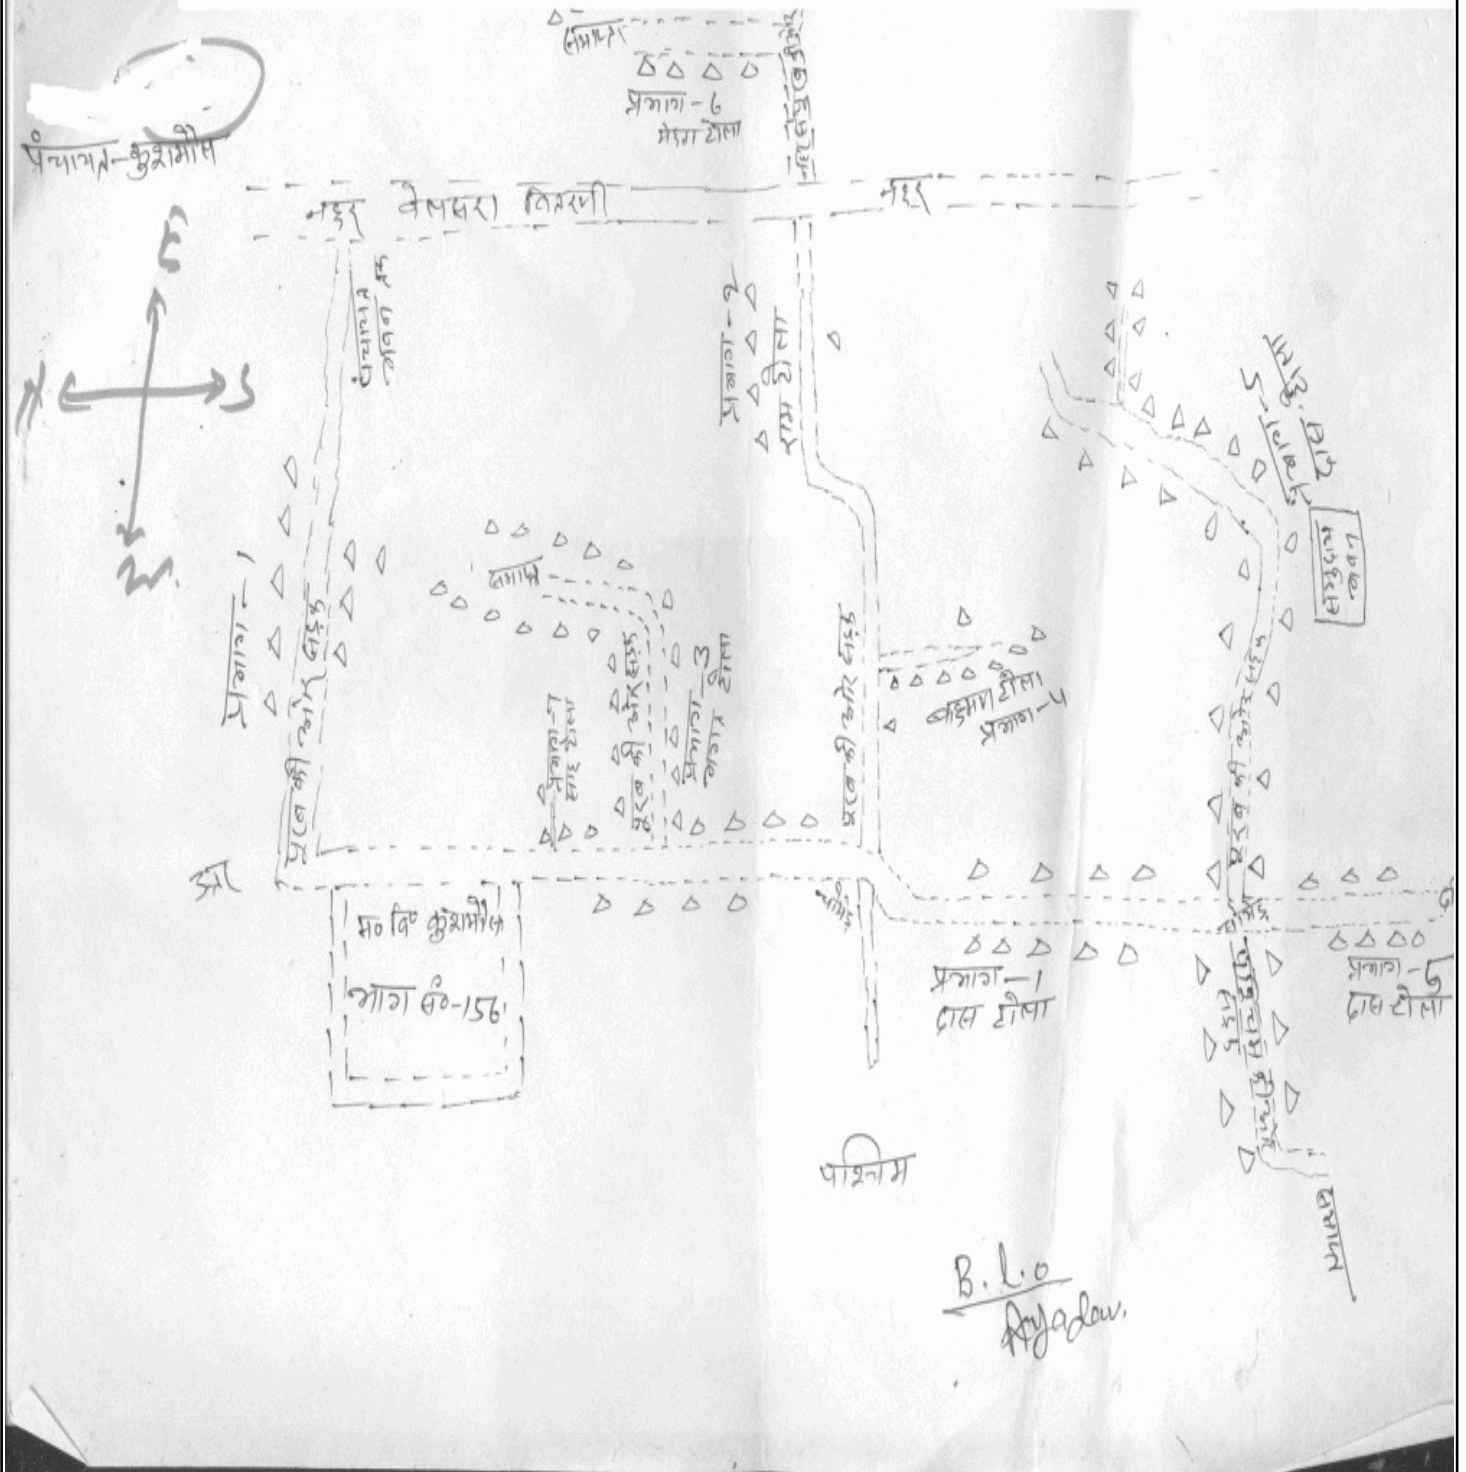 समाप्त
प्रभाग-6
टोला
पंचायत-कुशमौल
नहर बेलसरा वितरणी
नहर
E
N
S
W
पंचायत
भवन तक
प्रभाग-2
राम टोला
प्रभाग-5
सामुदायिक
भवन
प्रभाग-1
पूरब की ओर सड़क
समाप्त
प्रभाग-7
साह टोला
पूरब की ओर सड़क
प्रभाग-3
टोला
पूरब की ओर सड़क
ब्राह्मण टोला
प्रभाग-4
पूरब की ओर सड़क
म० वि० कुशमौल
भाग सं०-156
प्रभाग-1
दास टोला
प्रभाग-5
दास टोला
पश्चिम
समाप्त
B.L.O
AYadav.